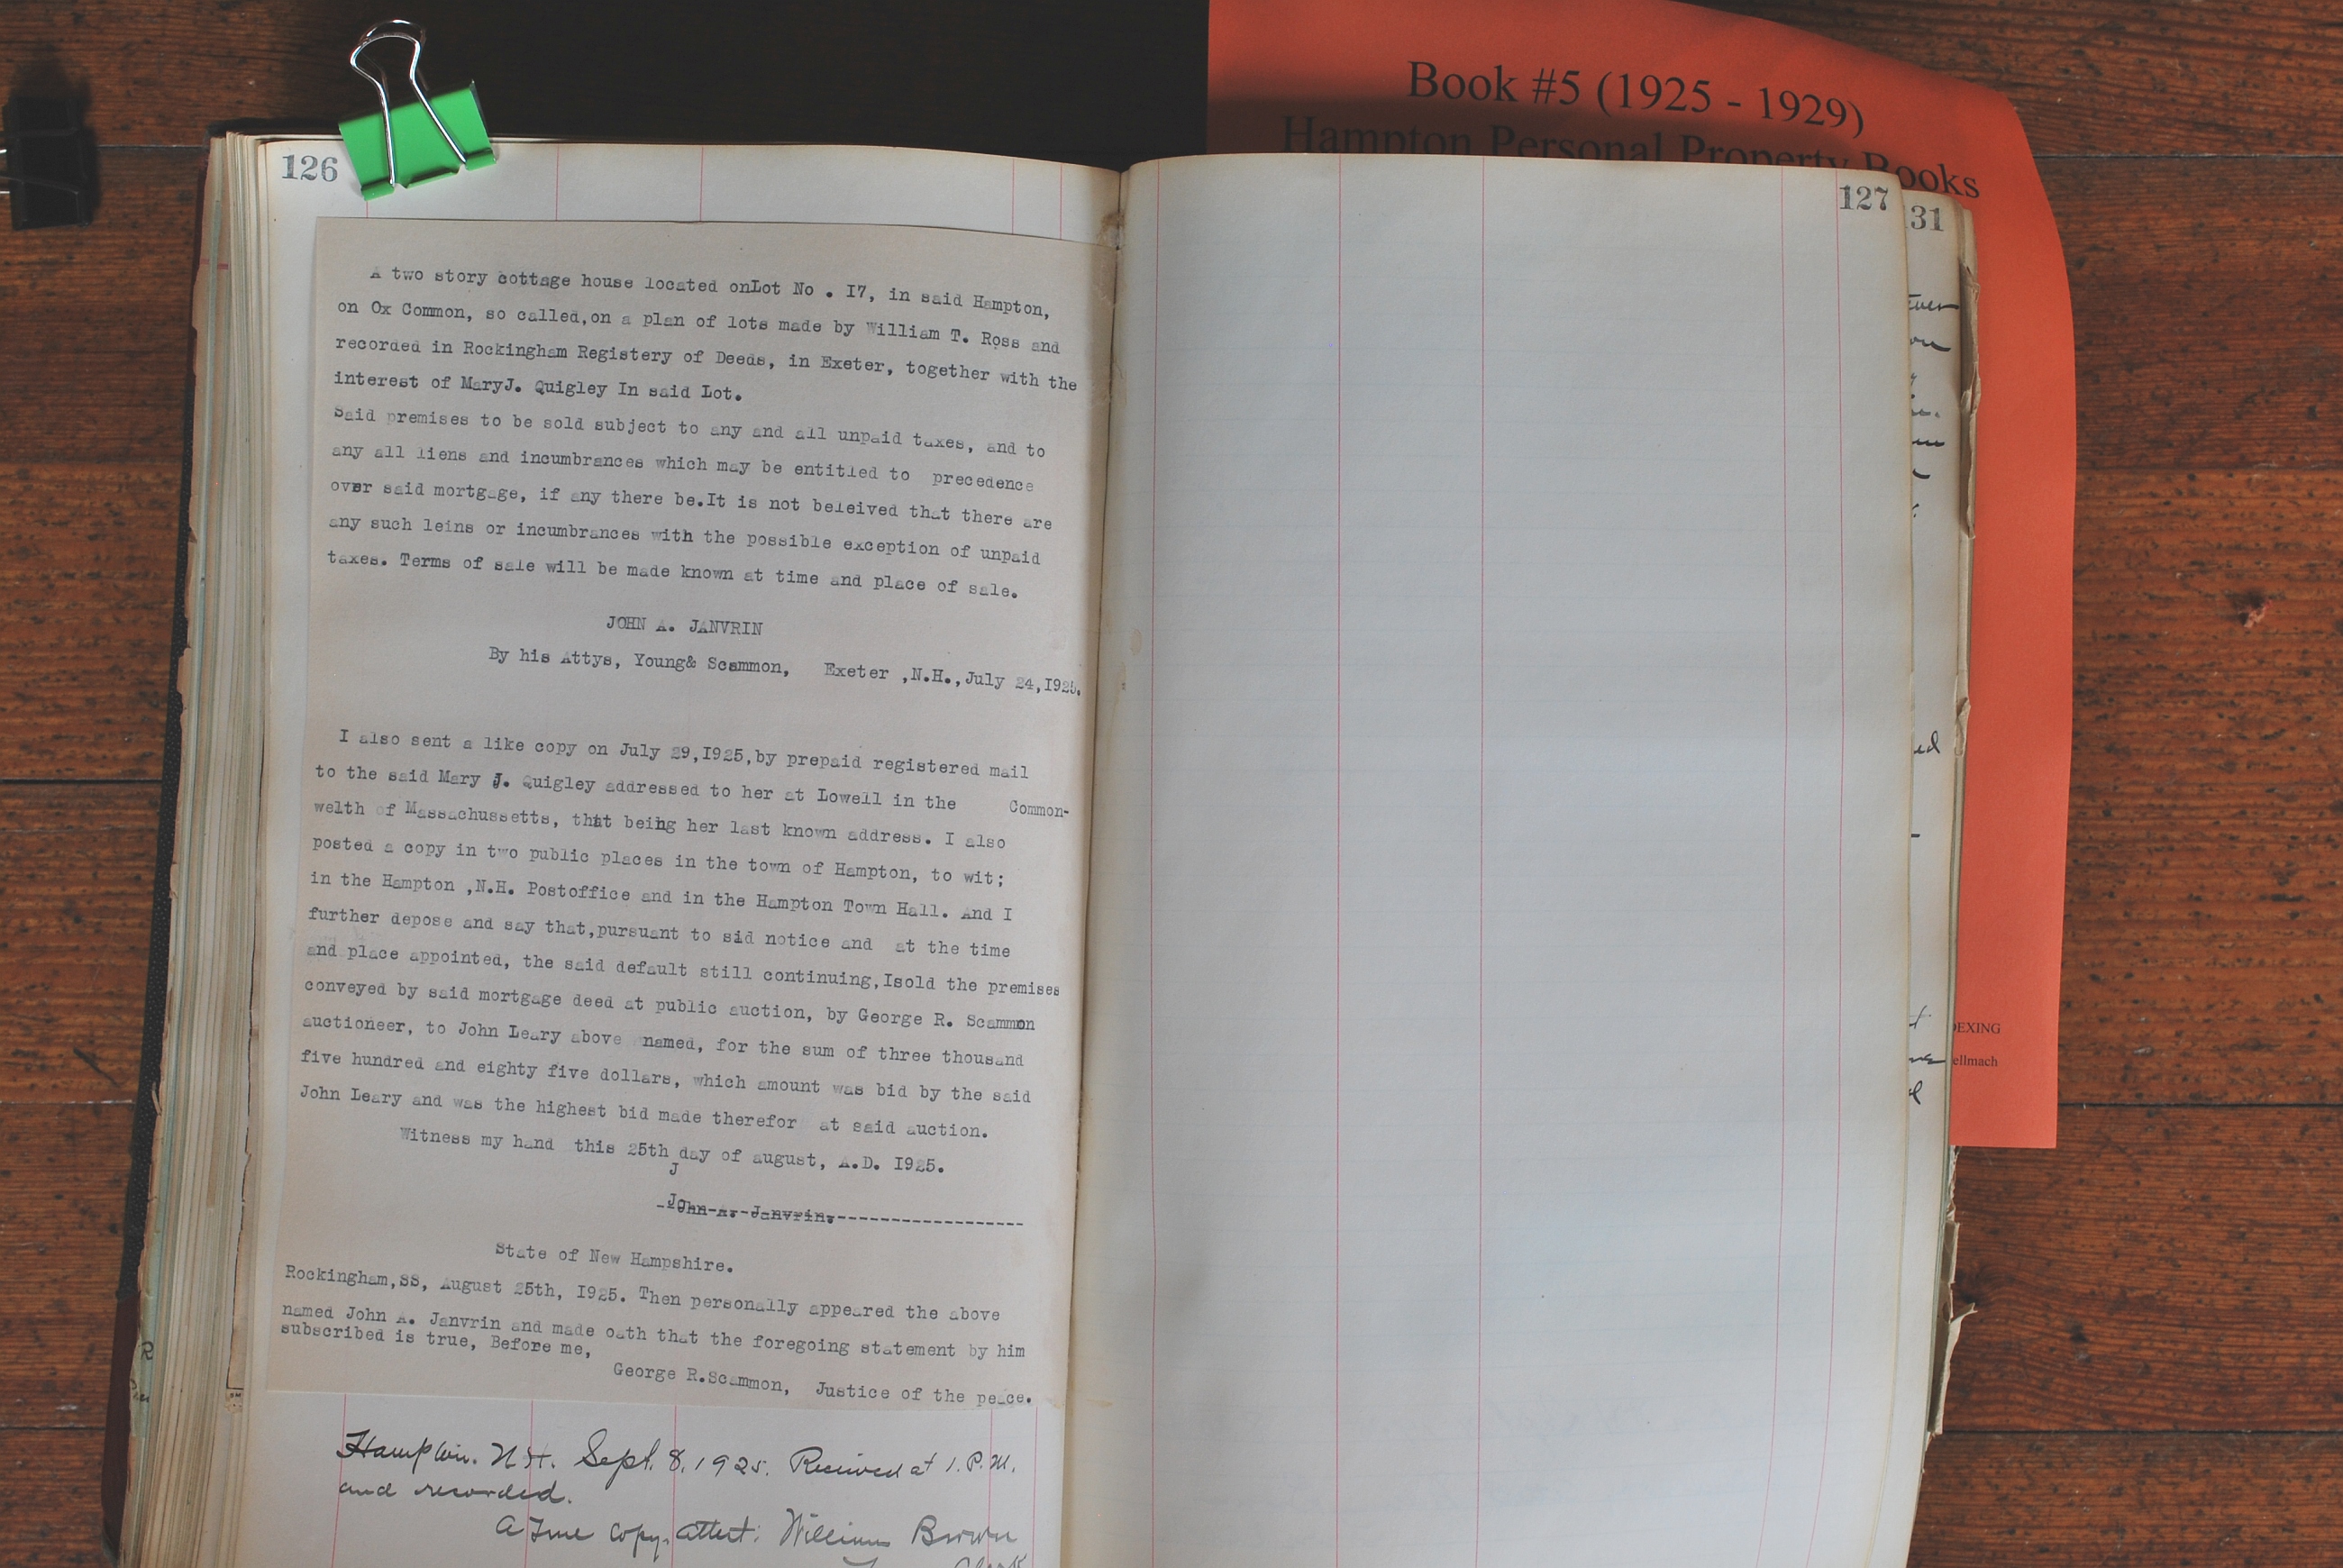 Book #5 (1925 - 1929)
Hampton Personal Property Books
126
127
31
A two story cottage house located onLot No . I7, in said Hampton,
on Ox Common, so called,on a plan of lots made by William T. Ross and
recorded in Rockingham Registery of Deeds, in Exeter, together with the
interest of MaryJ. Quigley In said Lot.
Said premises to be sold subject to any and all unpaid taxes, and to
any all liens and incumbrances which may be entitled to precedence
over said mortgage, if any there be.It is not beleived that there are
any such leins or incumbrances with the possible exception of unpaid
taxes. Terms of sale will be made known at time and place of sale.
JOHN A. JANVRIN
By his Attys, Young& Scammon, Exeter ,N.H.,July 24,I925.
I also sent a like copy on July 29,I925,by prepaid registered mail
to the said Mary J. Quigley addressed to her at Lowell in the Common-
welth of Massachussetts, that being her last known address. I also
posted a copy in two public places in the town of Hampton, to wit;
in the Hampton ,N.H. Postoffice and in the Hampton Town Hall. And I
further depose and say that,pursuant to sid notice and at the time
and place appointed, the said default still continuing,Isold the premises
conveyed by said mortgage deed at public auction, by George R. Scammon
auctioneer, to John Leary above named, for the sum of three thousand
five hundred and eighty five dollars, which amount was bid by the said
John Leary and was the highest bid made therefor at said auction.
Witness my hand this 25th day of august, A.D. I925.
J
John A. Janvrin.
State of New Hampshire.
Rockingham,SS, August 25th, I925. Then personally appeared the above
named John A. Janvrin and made oath that the foregoing statement by him
subscribed is true, Before me,
George R.Scammon, Justice of the peace.
Hampton. N.H. Sept. 8, 1925. Received at 1. P.M.
and recorded.
A True Copy, attest: William Brown
Clerk
EXING
ellmach